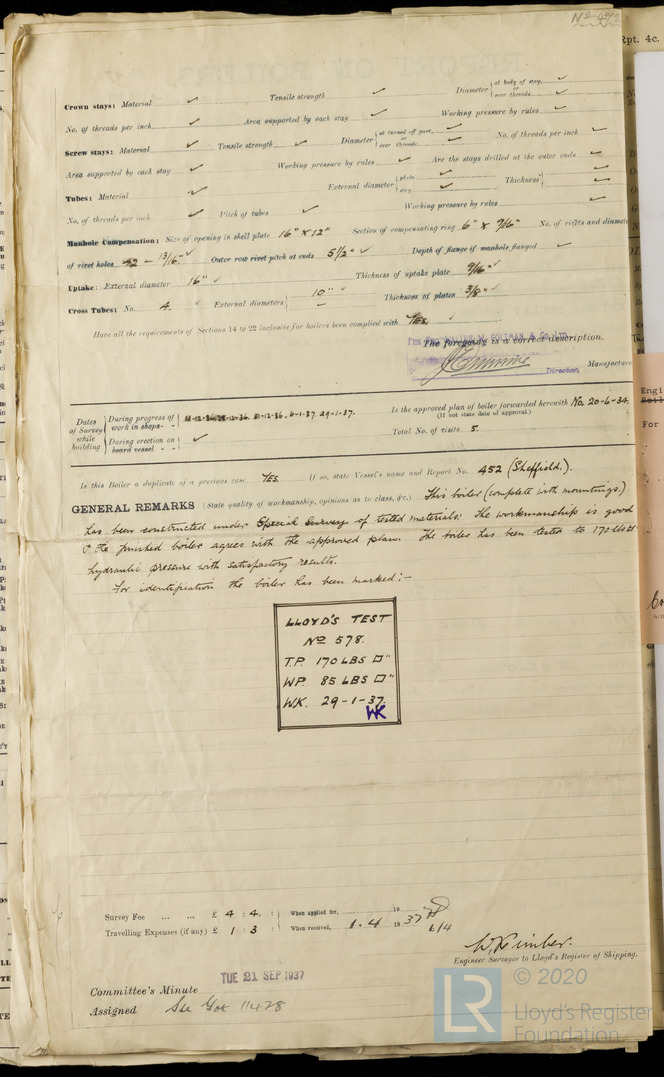 Rpt. 4c.
Crown stays: Material ✓ Tensile strength ✓ Diameter { at body of stay, or over threads ✓
No. of threads per inch ✓ Area supported by each stay ✓ Working pressure by rules ✓
Screw stays: Material ✓ Tensile strength ✓ Diameter { at turned off part, or over threads ✓ No. of threads per inch ✓
Area supported by each stay ✓ Working pressure by rules ✓ Are the stays drilled at the outer ends ✓
Tubes: Material ✓ External diameter { plain ✓ stay ✓ Thickness { ✓
No. of threads per inch ✓ Pitch of tubes ✓ Working pressure by rules ✓
Manhole Compensation: Size of opening in shell plate 16" × 12" Section of compensating ring 6" × 9/16" No. of rivets and diameter
of rivet holes 42 - 13/16" ✓ Outer row rivet pitch at ends 5 1/2" ✓ Depth of flange if manhole flanged ✓
Uptake: External diameter 16" ✓ Thickness of uptake plate 9/16" ✓
Cross Tubes: No. 4. External diameters { 10" Thickness of plates 3/8" ✓
Have all the requirements of Sections 14 to 22 inclusive for boilers been complied with Yes.
The foregoing is a correct description,
Director. Manufacturer
Dates of Survey while building { During progress of work in shops - - 31-12-36. 6-1-37. 29-1-37.
During erection on board vessel - - ✓
Is the approved plan of boiler forwarded herewith No. 20-6-34.
(If not state date of approval.)
Total No. of visits 5.
Is this Boiler a duplicate of a previous case Yes. If so, state Vessel's name and Report No. 452 (Sheffield.).
GENERAL REMARKS (State quality of workmanship, opinions as to class, &c.) This boiler (complete with mountings)
has been constructed under Special Survey of tested materials. The workmanship is good
& the finished boiler agrees with the approved plan. The boiler has been tested to 170 lbs □"
hydraulic pressure with satisfactory results.
For identification the boiler has been marked:—
LLOYD'S TEST
No 578.
T.P. 170 LBS □"
WP. 85 LBS □"
W.K. 29-1-37.
WK
Survey Fee ... ... £ 4 : 4. : When applied for, 19
Travelling Expenses (if any) £ 1 : 3 : When received, 1.4 1937 6/4
W. Kimber.
Engineer Surveyor to Lloyd's Register of Shipping.
TUE 21 SEP 1937
Committee's Minute
Assigned See Got 11428
LR © 2020
Lloyd's Register
Foundation